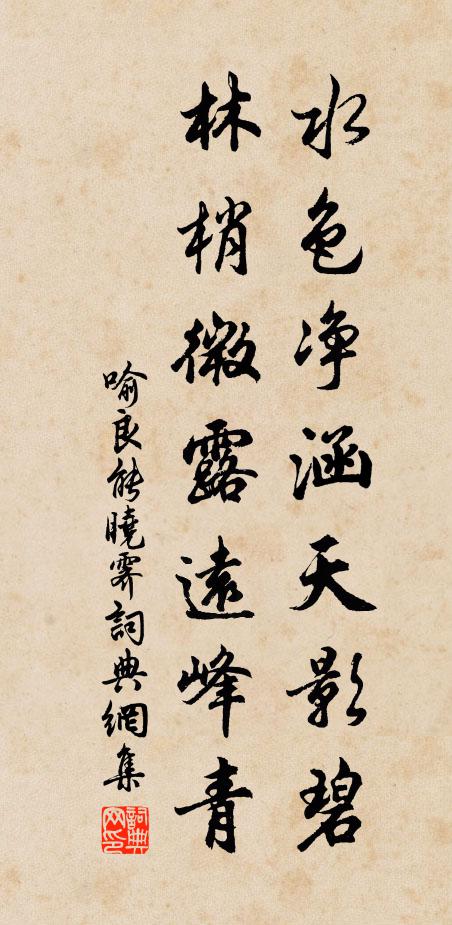 水色净涵天影碧
林梢微露遠峰青
喻良能曉霽詞典網集
詞典网印